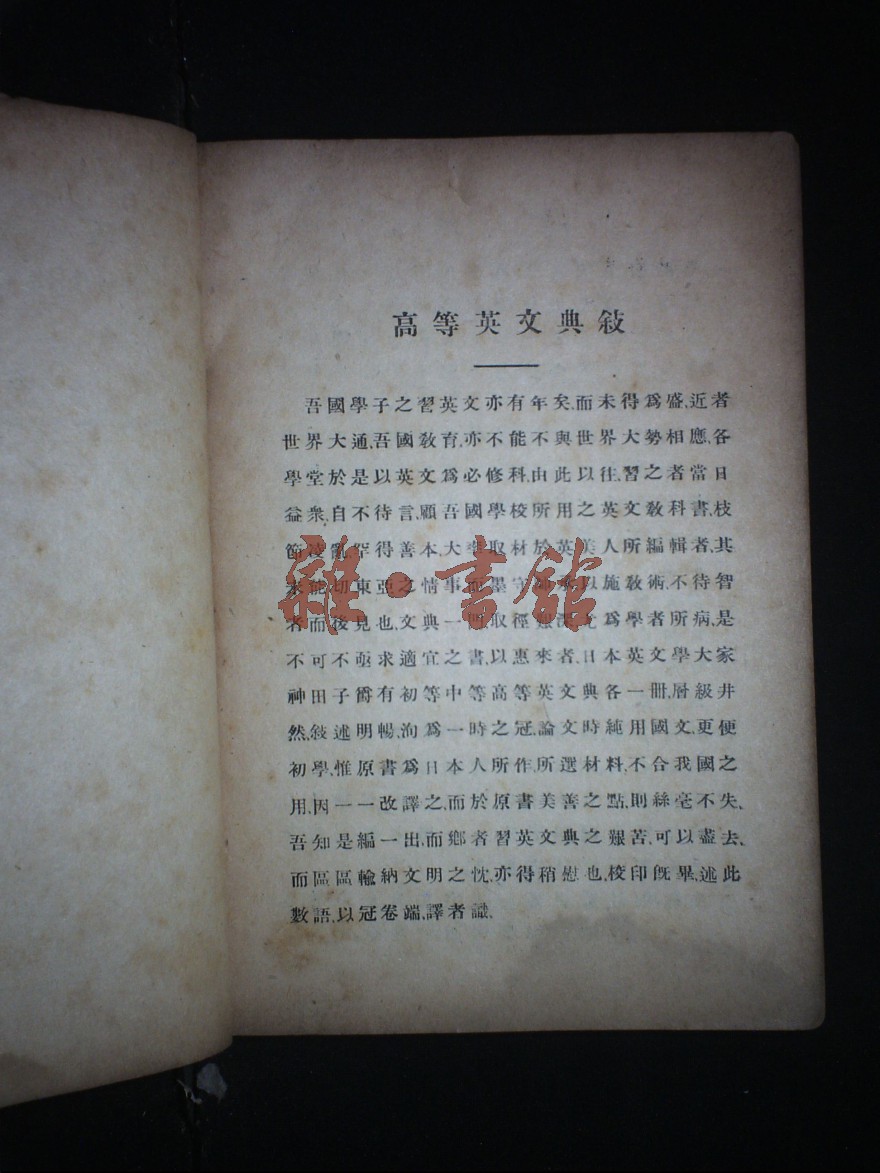 高等英文典敍
吾國學子之習英文亦有年矣、而未得爲盛、近者
世界大通、吾國敎育、亦不能不與世界大勢相應、各
學堂於是以英文爲必修科、由此以往、習之者當日
益衆、自不待言、顧吾國學校所用之英文敎科書、枝
節凌亂、罕得善本、大率取材於英美人所編輯者、其
未能切東亞之情事而墨守以施敎術、不待智
者而後見也、文典一取徑爲學者所病、是
不可不亟求適宜之書、以惠來者、日本英文學大家
神田子爵有初等中等高等英文典各一冊、層級井
然、敍述明暢、洵爲一時之冠、論文時純用國文、更便
初學、惟原書爲日本人所作、所選材料、不合我國之
用、因一一改譯之、而於原書美善之點、則絲毫不失、
吾知是編一出、而鄉者習英文典之艱苦、可以盡去、
而區區輸納文明之忱、亦得稍慰也、校印旣畢、述此
數語、以冠卷端、譯者識、
雜·書館